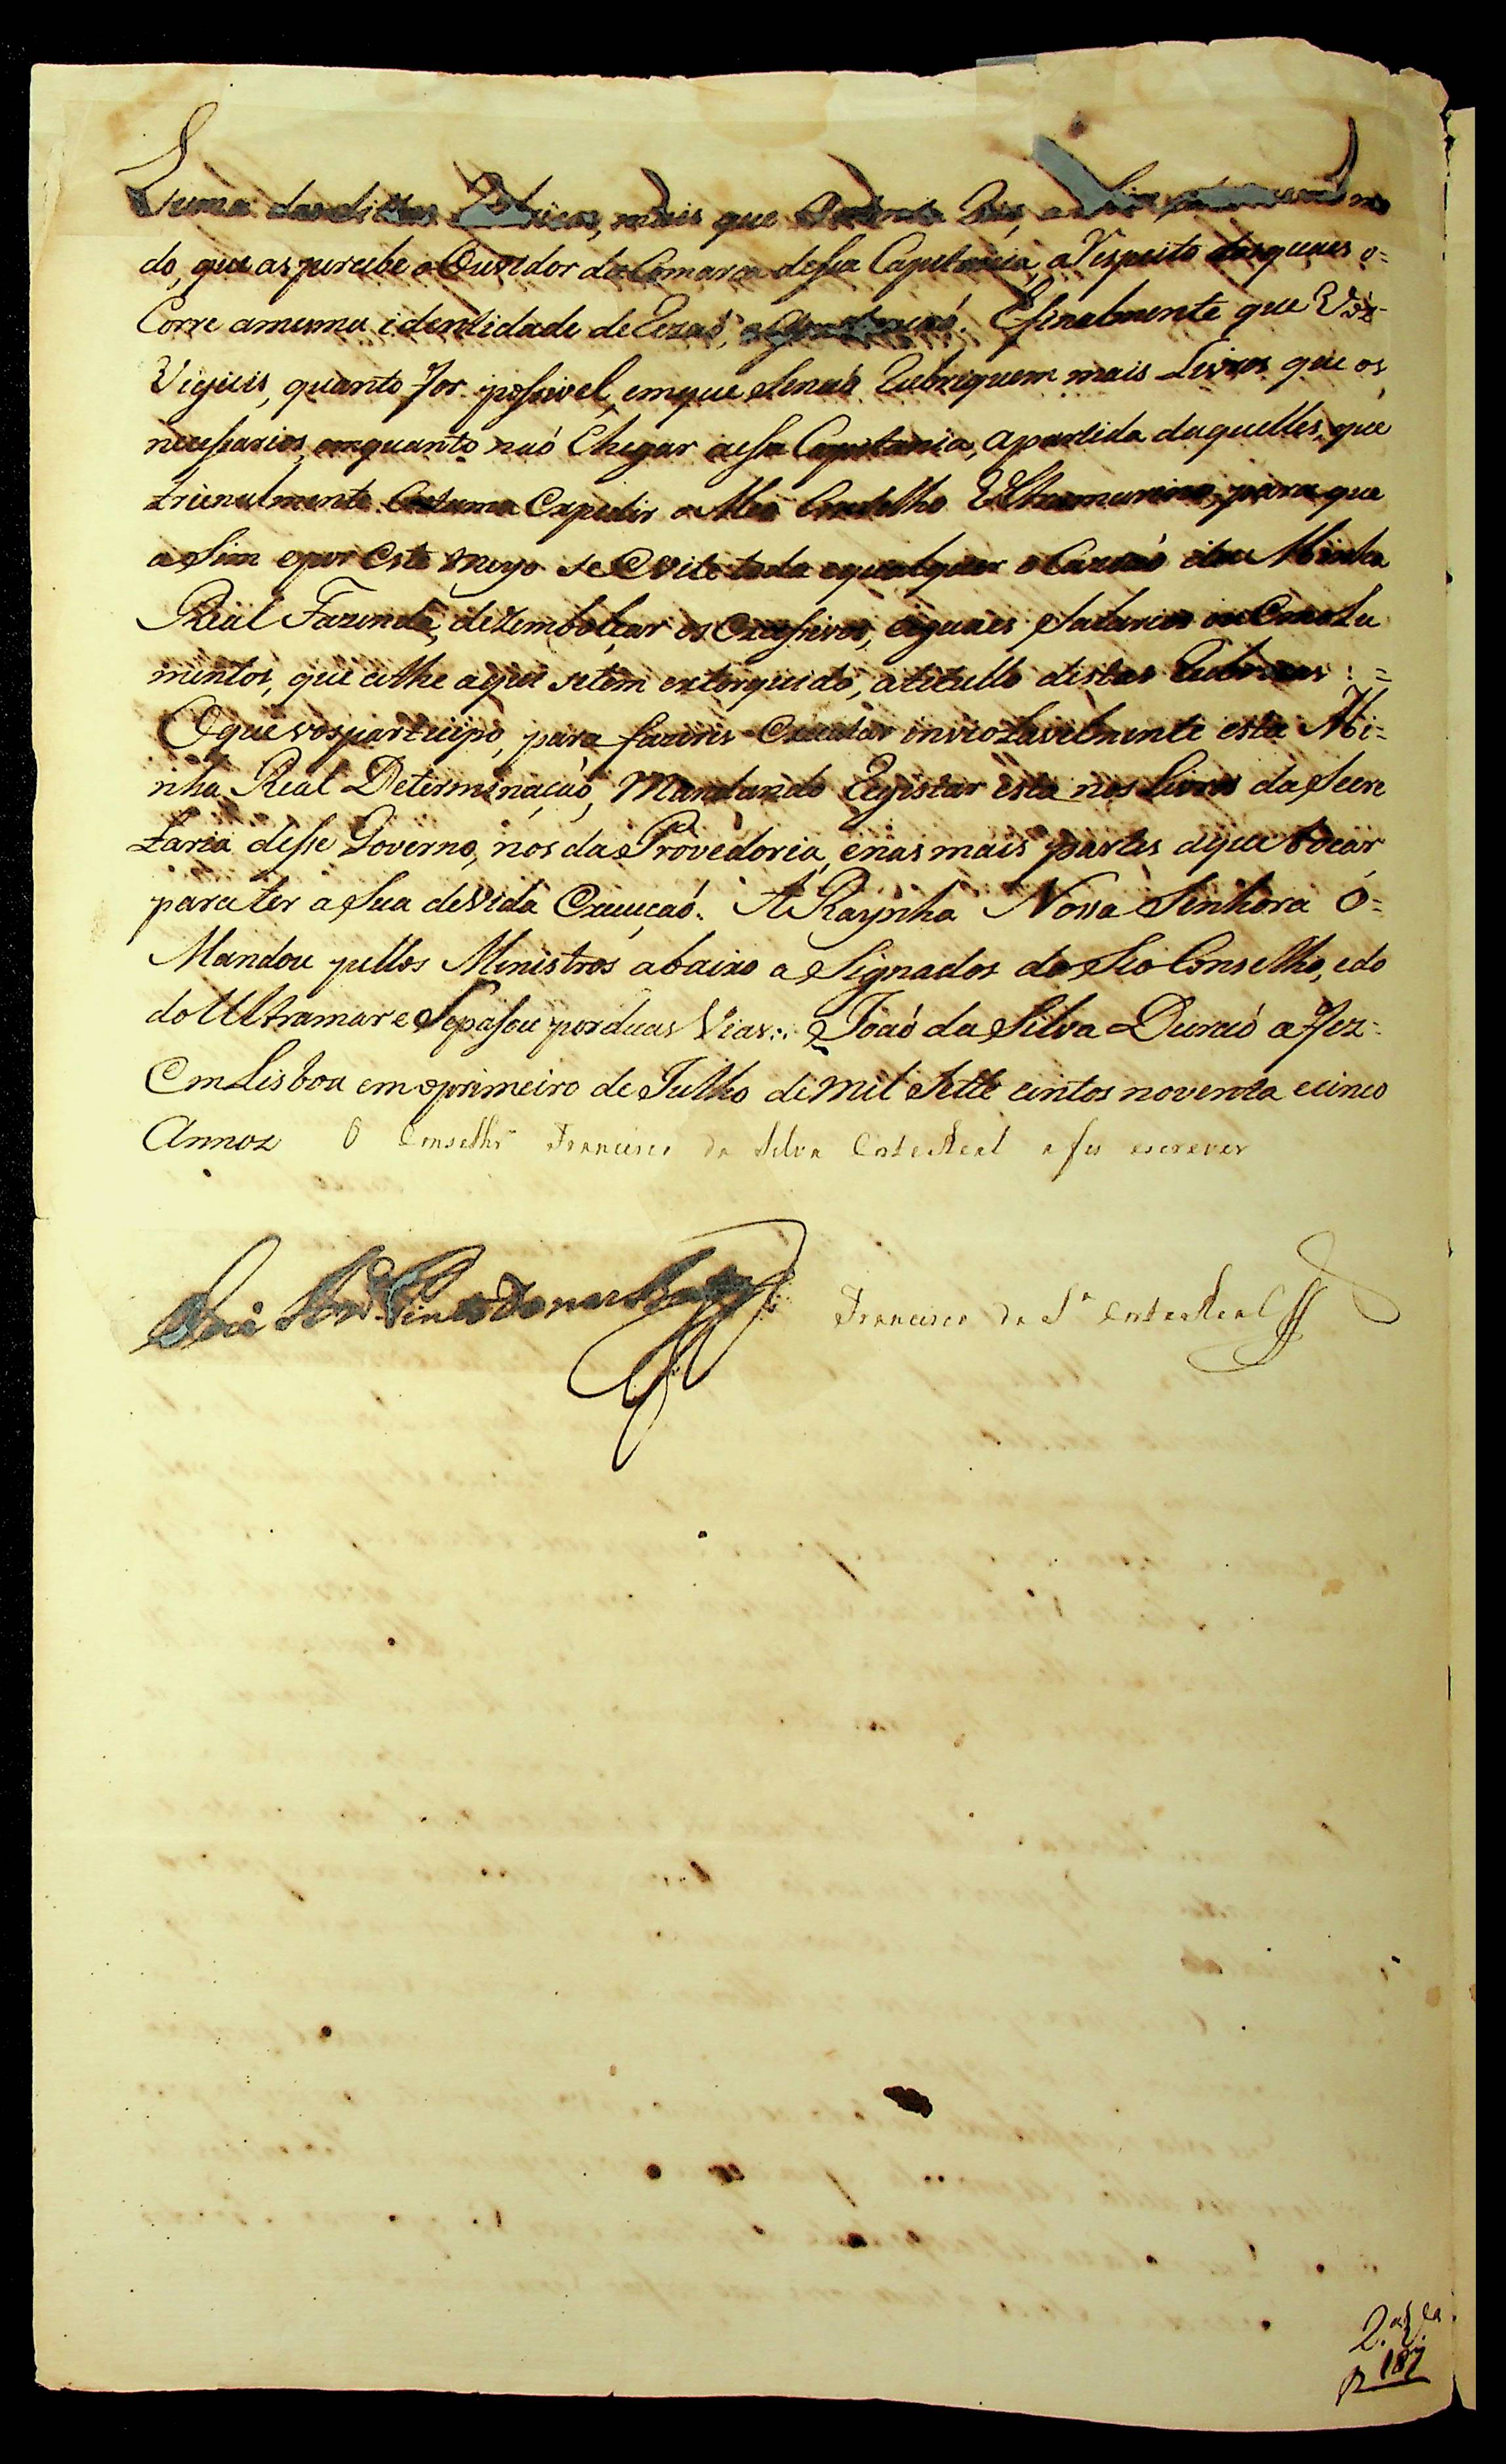 huma das dittas Rubricas, mais que quarenta Reis, mo
do, que as percebe o Ouvidor da Comarca dessa Capitania, a Respeito das quaes o=
Corre amesma identidade de Rezaó, E finalmente que Vos
Vigieis, quanto for possivel, em que senaó Rubriquem mais Livros que os
necessarios, emquanto naó Chegar aessa Capitania, apartida daquelles, que
trienalmente Costuma Expedir o Meo Conselho Ultramarino, para que
a Sim epor Este meyo se Evite toda equalquer o Caziaó de a Minha
Real Fazenda, dezembolçar os Excessivos, eiguaes Salarios ou Emolu
mentos, que athe aqui setem extorquido, atitullo destas Rubricas: =
O que vos participo, para fazeres Executar inviolavelmente esta Mi=
nha Real Determinaçaó, Mandando Registar esta nos Livros da Secre
taria desse Governo, nos da Provedoria, enas mais partes aque tocar
para ter a Sua devida Execuçaó. A Raynha Nossa Senhora o=
Mandou pellos Ministros abaixo a Signados do Seo Conselho, edo
do Ultramar e Sepasou por duas Vias: João da Silva Duraó a fez=
Em Lisboa em oprimeiro de Julho de mil Sette centos noventa ecinco
Annos O Conselhr.º Francisco da Silva Corte Real a fes escrever
Francisco da S.ª Corte Real
2.ª V.ª
187